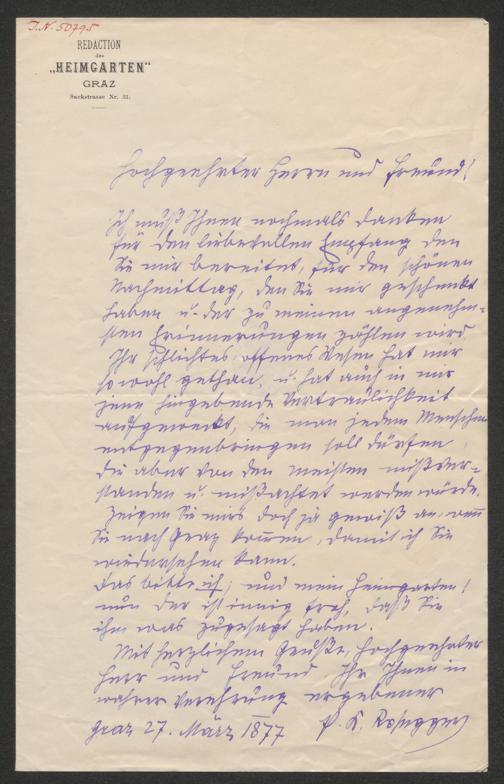 I.N. 50795
REDACTION
des
„HEIMGARTEN“
GRAZ
Sackstrasse Nr. 21.
Hochgeehrter Herr und Freund!
Ich muß Ihnen nochmals danken
für den liebevollen Empfang den
Sie mir bereitet, für den schönen
Nachmittag, den Sie mir geschenkt
haben u. der zu meinen angenehm-
sten Erinnerungen zählen wird.
Ihr schlichtes offenes Wesen hat mir
so wohl gethan, u. hat auch in mir
jene hingebende Vertraulichkeit
aufgeweckt, die man jedem Menschen
entgegenbringen soll dürfen,
die aber von den meisten mißver-
standen u. mißachtet werden würde.
Zeigen Sie mirs doch ja gewiß an, wenn
Sie nach Graz komen, damit ich Sie
wiedersehen kann.
Das bitte ich; und mein Heimgarten!
nun der ist innig froh, daß Sie
ihm was zugesagt haben.
Mit herzlichem Gruße, hochgeehrter
Herr und Freund Ihr Ihnen in
wahrer Verehrung ergebener
Graz 27. März 1877 P. K. Rosegger